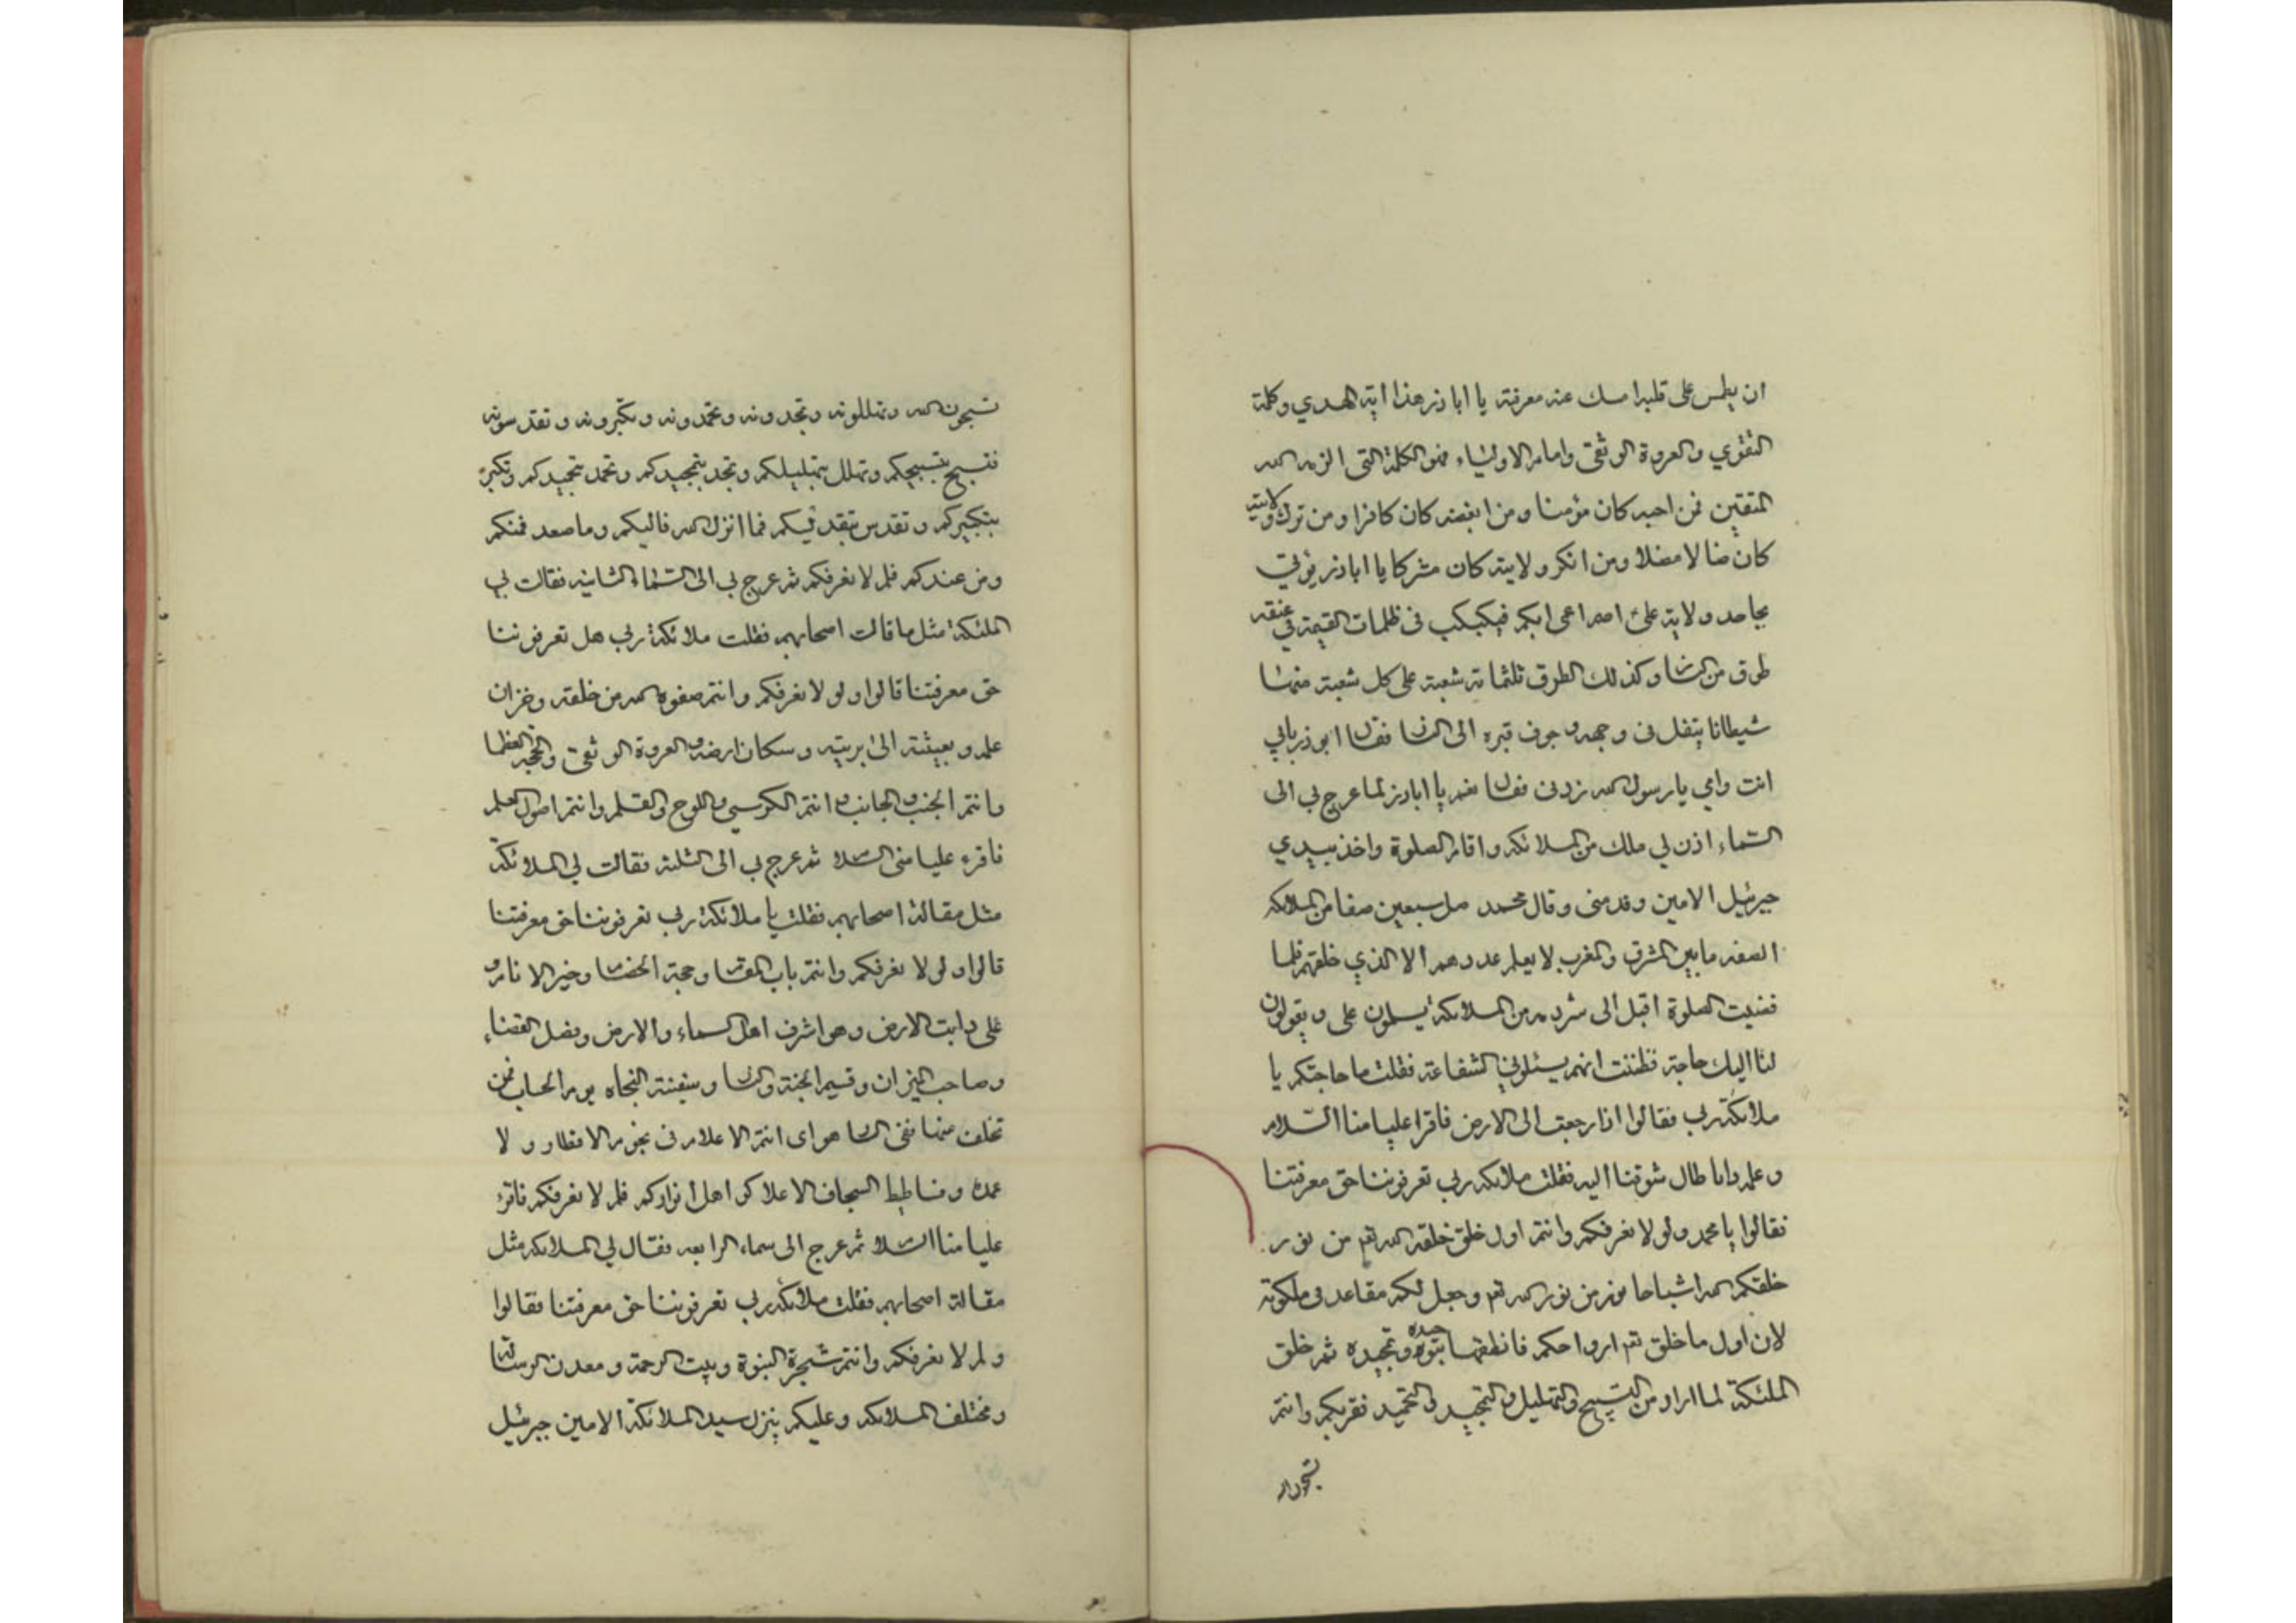 ان يطمس على قلبه امسك عنه معرفته يا اباذر هذا اية الهدي وكلمة
التقوي والعروة الوثقى وامام الاولياء فهو الكلمة التى الزمه الله
المتقين فمن احبه كان مؤمنا ومن ابغضه كان كافرا ومن ترك ولايته
كان ضالا مضلا ومن انكر ولايته كان مشركا يا اباذر يؤتي
بجاحد ولاية على اصم اعمى ابكم فيكبكب فى ظلمات القيمة فى عنقه
طوق من النار وكذلك الطوق ثلثماتة شعبة على كل شعبة منها
شيطانا يتفل فى وجهه و جوف قبره الى النار فقال ابوذر بابي
انت وامي يا رسول الله زدنى فقال نعم يا اباذر لما عرج بي الى
السماء اذن لي ملك من الملائكه واقام الصلوة واخذ بيدي
جبرئيل الامين وقدمنى وقال محمد صل سبعين صفا من الملائكه
الصف ما بين المشرق والمغرب لا يعلم عددهم الا الذي خلقهم فلما
قضيت الصلوة اقبل الى شرذمه من الملائكة يسلمون على ويقولون
لنا اليك حاجة فظننت انهم يسئلوني الشفاعة فقلت ما حاجتكم يا
ملائكة ربي فقالوا اذا رجعت الى الارض فاقرا عليا منا السلام
وعلمه وانا طال شوقنا اليه فقلت ملائكه ربي تعرفوننا حق معرفتنا
فقالوا يا محمد ولو لا نعرفكم وانتم اول خلق خلقه الله تع من نور
خلقكم الله اشباحا نور من نور الله تع وجعل لكم مقاعد فى ملكوته
لان اول ما خلق تع ارواحكم فانطقها بتوحيده وتمجيده ثم خلق
الملئكة لما اراد من التسبيح والتهليل والتمجيد و التحميد فقربكم وانتم
تسبحون الله
تسبحون الله وتهللونه وتمجدونه وتحمدونه وتكبرونه وتقدسونه
فنسبح بتسبيحكم ونهلل بتهليلكم ونمجد بتمجيدكم ونحمد بتحميدكم ونكبر
بتكبيركم ونقدس بتقديسكم فما انزل الله فاليكم وما صعد فمنكم
ومن عندكم فلم لا نعرفكم ثم عرج بي الى السماء الثانيه فقالت لي
الملئكة مثل ما قالت اصحابهم فقلت ملائكة ربي هل تعرفوننا
حق معرفتنا قالوا ولو لا نعرفكم وانتم صفوه الله من خلقه وخزان
علمه وبعيثته الى بريته وسكان ارضه والعروة الوثقى والحجة العظما
وانتم الجنب والجانب و انتم الكرسي واللوح والقلم وانتم اصول العلم
فاقره عليا منى السلا ثم عرج بي الى الثلثه فقالت لي الملائكة
مثل مقالة اصحابهم فقلت يا ملائكة ربي تعرفوننا حق معرفتنا
قالوا ولو لا نعرفكم وانتم باب المقا وحجة الخصا وخير الانام و
على دابت الارض وهو اشرف اهل السماء والارض وفصل القضاء
وصاحب الميزان وقسيم الجنة والنار وسفينة النجاه يوم الحساب فمن
تخلف عنها ففى النار هوى انتم الاعلام فى بحور الاقطار و لا
عمدة وفساطيط السجاف الاعلا كواهل انواركم فلم لا نعرفكم فاقرء
عليا منا السلا ثم عرج الى سماء الرابعه فقال لي الملائكه مثل
مقالة اصحابهم فقلت ملائكه ربي تعرفوننا حق معرفتنا فقالوا
ولم لا نعرفكم وانتم شجرة النبوة وبيت الرحمة ومعدن الرسالة
ومختلف الملائكه وعليكم ينزل سيد الملائكة الامين جبرئيل